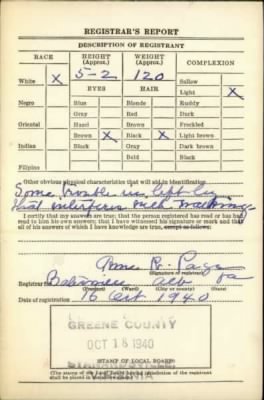 REGISTRAR'S REPORT
DESCRIPTION OF REGISTRANT
RACE HEIGHT (Approx.) WEIGHT (Approx.) COMPLEXION
White X 5-2 120 Sallow
EYES HAIR Light X
Negro Blue Blonde Ruddy
Gray Red Dark
Oriental Hazel Brown Freckled
Brown X Black X Light brown
Indian Black Gray Dark brown
Bald Black
Filipino
Other obvious physical characteristics that will aid in identification
Some trouble in left leg
that interferes with walking
I certify that my answers are true; that the person registered has read or has had
read to him his own answers; that I have witnessed his signature or mark and that
all of his answers of which I have knowledge are true, except as follows:
R. Page
(Signature of registrar)
Registrar for Alb Va
(Precinct) (Ward) (City or county) (State)
Date of registration 16 Oct 1940
GREENE COUNTY
OCT 18 1940
(STAMP OF LOCAL BOARD)
VIRGINIA
(The stamp of the Local Board having jurisdiction of the registrant
shall be placed in